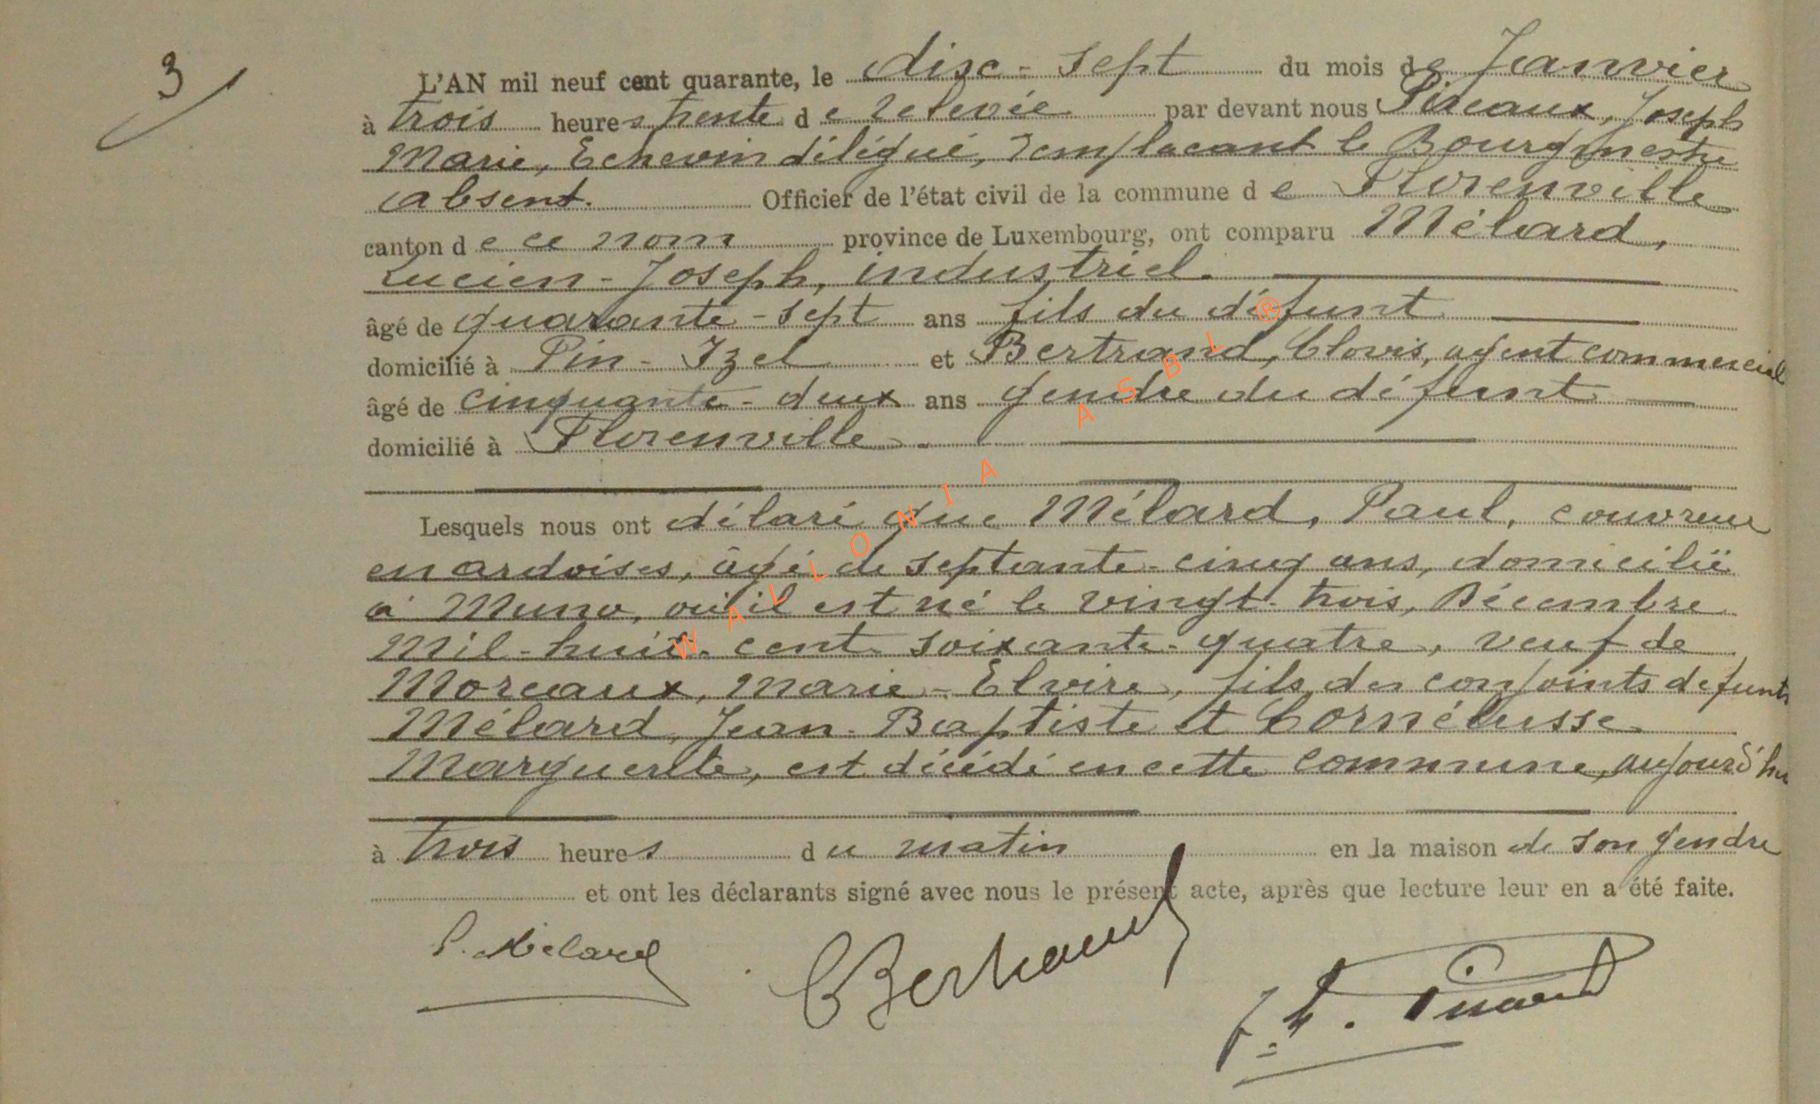 3
L'AN mil neuf cent quarante, le disc-sept du mois de Janvier
à trois heures trente de relevée par devant nous Pireaux, Joseph
Marie, Echevin délégué, remplacant le Bourgmestre
absent. Officier de l'état civil de la commune de Florenville
canton de ce nom province de Luxembourg, ont comparu Mélard,
Lucien-Joseph, industriel.
âgé de quarante-sept ans fils du défunt
domicilié à Pin-Izel et Bertrand, Clovis, agent commercial
âgé de cinquante-deux ans gendre du défunt
domicilié à Florenville.
Lesquels nous ont délaré que Mélard, Paul, couvreur
en ardoises, âgé de septante-cinq ans, domicilié
à Muno, où il est né le vingt-trois, Décembre
Mil-huit-cent soixante-quatre, veuf de
Moreaux, Marie-Elvire, fils des conjoints defunts
Mélard, Jean-Baptiste et Cornélusse
Marguerite, est décédé en cette commune, aujourd'hui
à trois heures du matin en la maison de son gendre
et ont les déclarants signé avec nous le présent acte, après que lecture leur en a été faite.
Mélard CBertrand
WALLONIA ASBL ®